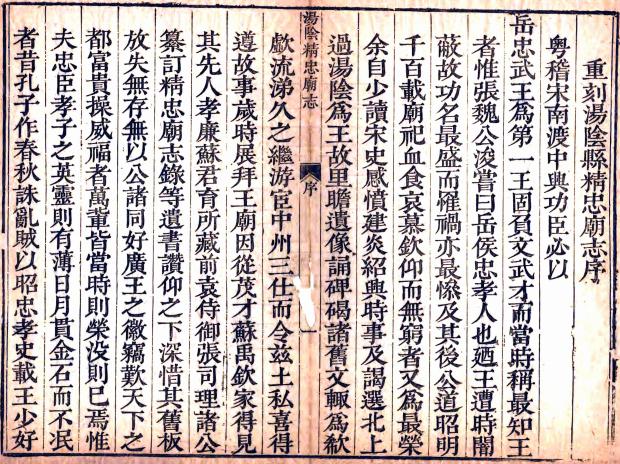 重刻湯陰縣精忠廟志序
粵稽宋南渡中興功臣必以
岳忠武王為第一王固負文武才而當時稱最知王
者惟張魏公浚嘗曰岳侯忠孝人也廼王遭時闇
蔽故功名最盛而罹禍亦最慘及其後公道昭明
千百載廟祀血食哀慕欽仰而無窮者又為最榮
余自少讀宋史感憤建炎紹興時事及謁選北上
過湯陰為王故里瞻遺像誦碑碣諸舊文輙為欷
湯陰精忠廟志
序
歔流涕久之繼游宦中州三仕而令茲土私喜得
遵故事歲時展拜王廟因從茂才蘇禹欽家得見
其先人孝廉蘇君育所藏前袁侍御張司理諸公
纂訂精忠廟志錄等遺書讚仰之下深惜其舊板
放失無存無以公諸同好廣王之徽竊歎天下之
都富貴操威福者萬軰皆當時則榮没則已焉惟
夫忠臣孝子之英靈則有薄日月貫金石而不泯
者昔孔子作春秋誅亂賊以昭忠孝史載王少好